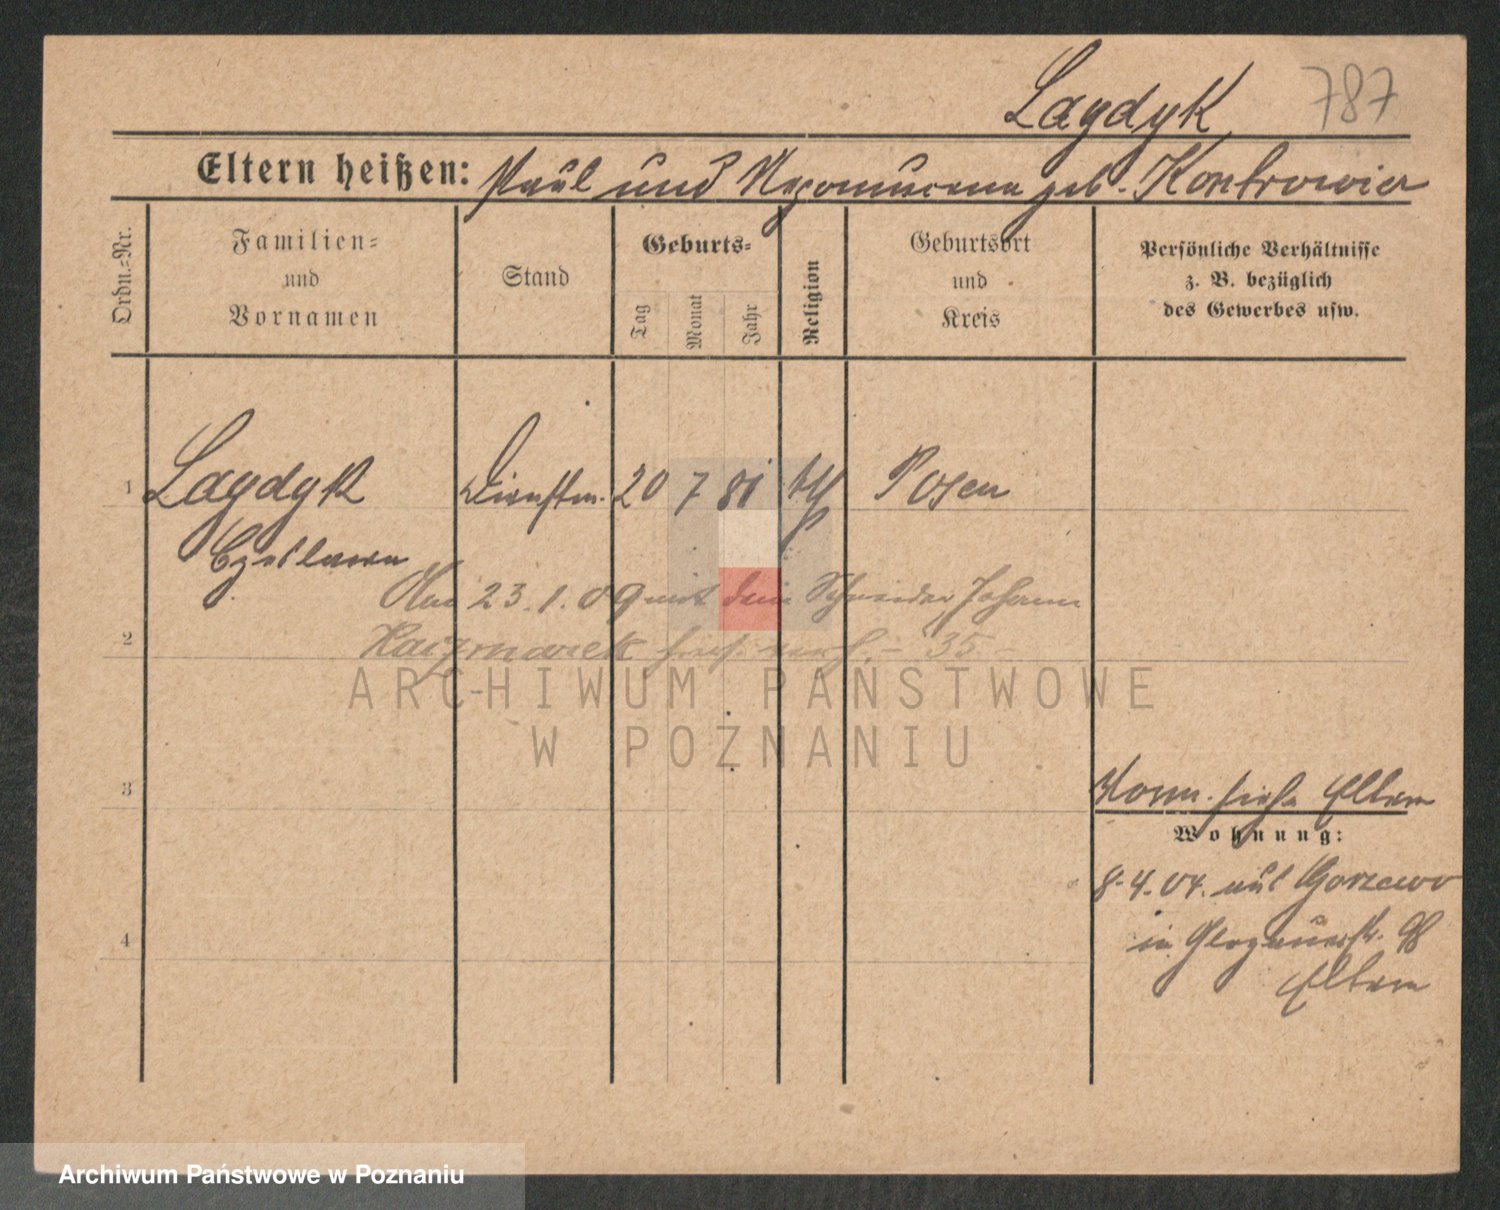 Lagdyk 787
Eltern heißen: Paul und Nepomucena geb. Kontrowicz
Ordn.-Nr.
Familien-
und
Vornamen
Stand
Geburts-
Tag
Monat
Jahr
Religion
Geburtsort
und
Kreis
Persönliche Verhältnisse
z. B. bezüglich
des Gewerbes usw.
1 Lagdyk Dienstm. 20 7 81 kth Posen
Czeslawa
Am 23.1.09 mit dem Schneider Johann
2
Kaczmarek hies. verh. - 35 -
ARCHIWUM PAŃSTWOWE
W POZNANIU
3
Vorm. siehe Eltern
Wohnung:
8.4.04. aus Gorzewo
4
in Glogauerstr. 98
Eltern
Archiwum Państwowe w Poznaniu